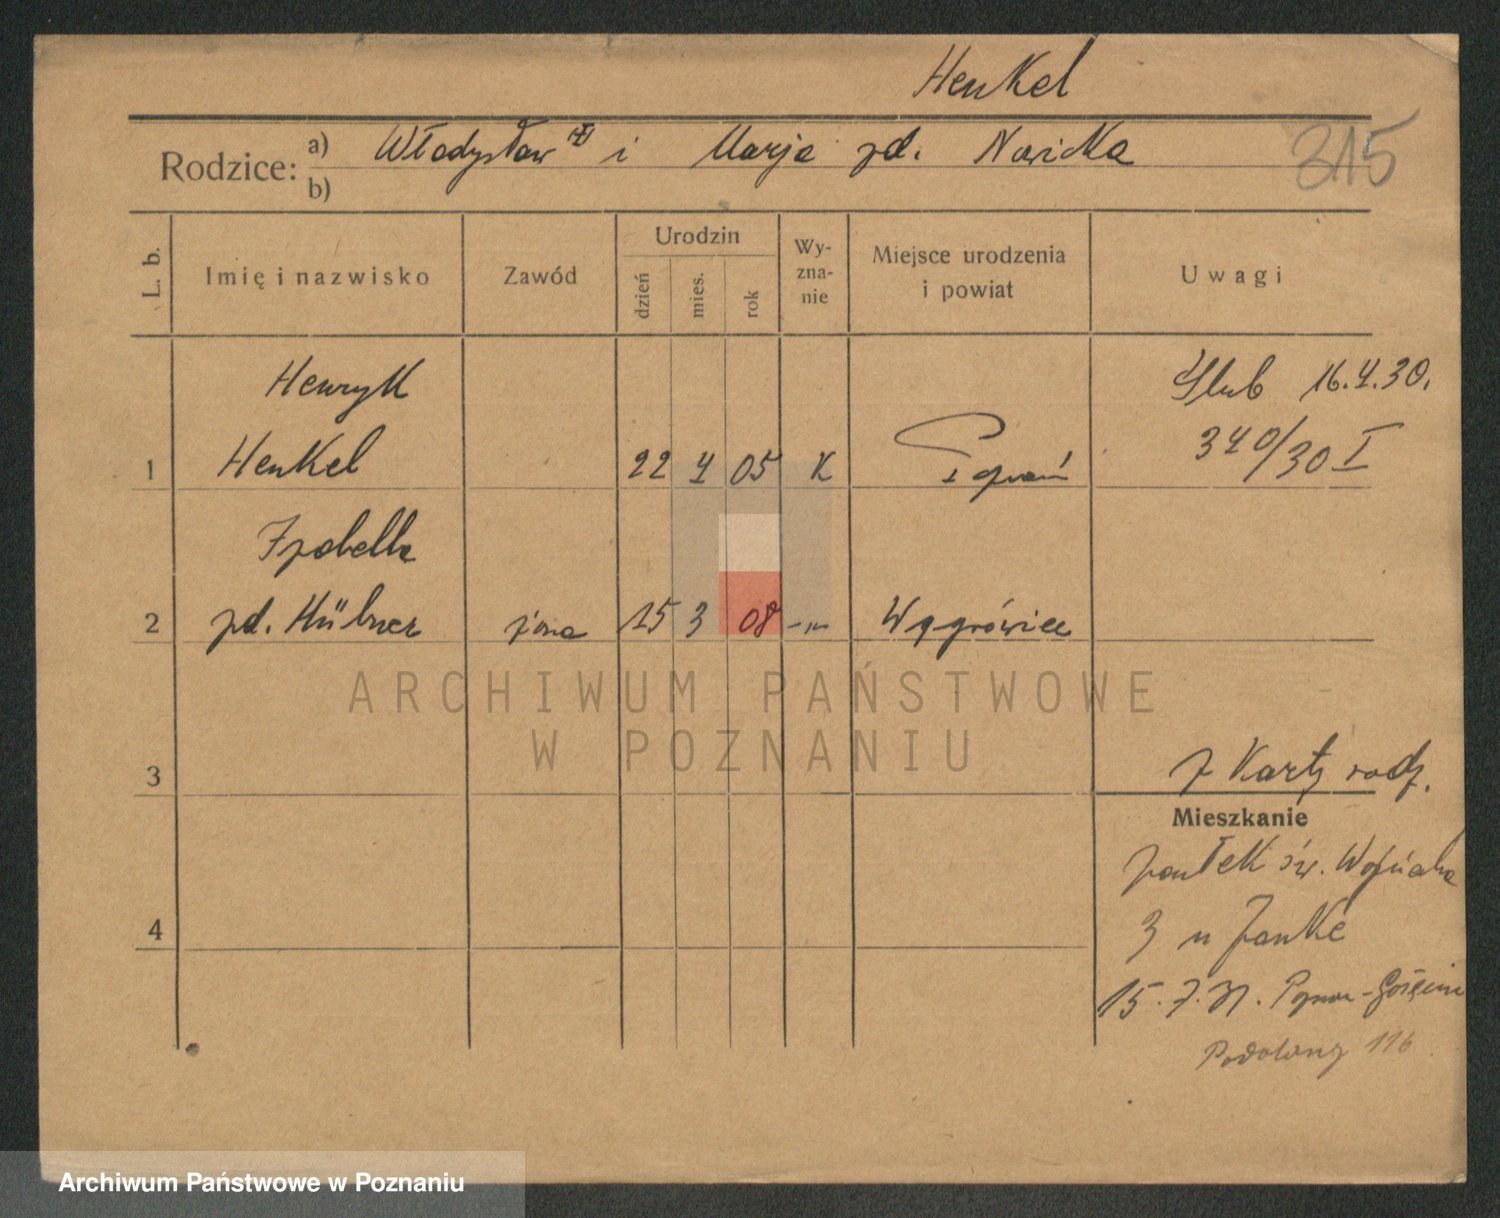 Henkel
315
Rodzice: a) Władysław i Marja zd. Nowicka
b)
L. b.
Imię i nazwisko
Zawód
Urodzin
dzień
mies.
rok
Wy-
zna-
nie
Miejsce urodzenia
i powiat
Uwagi
Henryk
Ślub 16.4.30.
1 Henkel 22 4 05 K Poznań
340/30 I
Izabella
2 zd. Hübner żona 15 3 08 -"- Wągrówiec
ARCHIWUM PAŃSTWOWE
W POZNANIU
3
z Karty rodz.
Mieszkanie
zaułek św. Wojciecha
4
3 u Janke
15.7.31. Poznań-Golęcin
Podolany 116
Archiwum Państwowe w Poznaniu